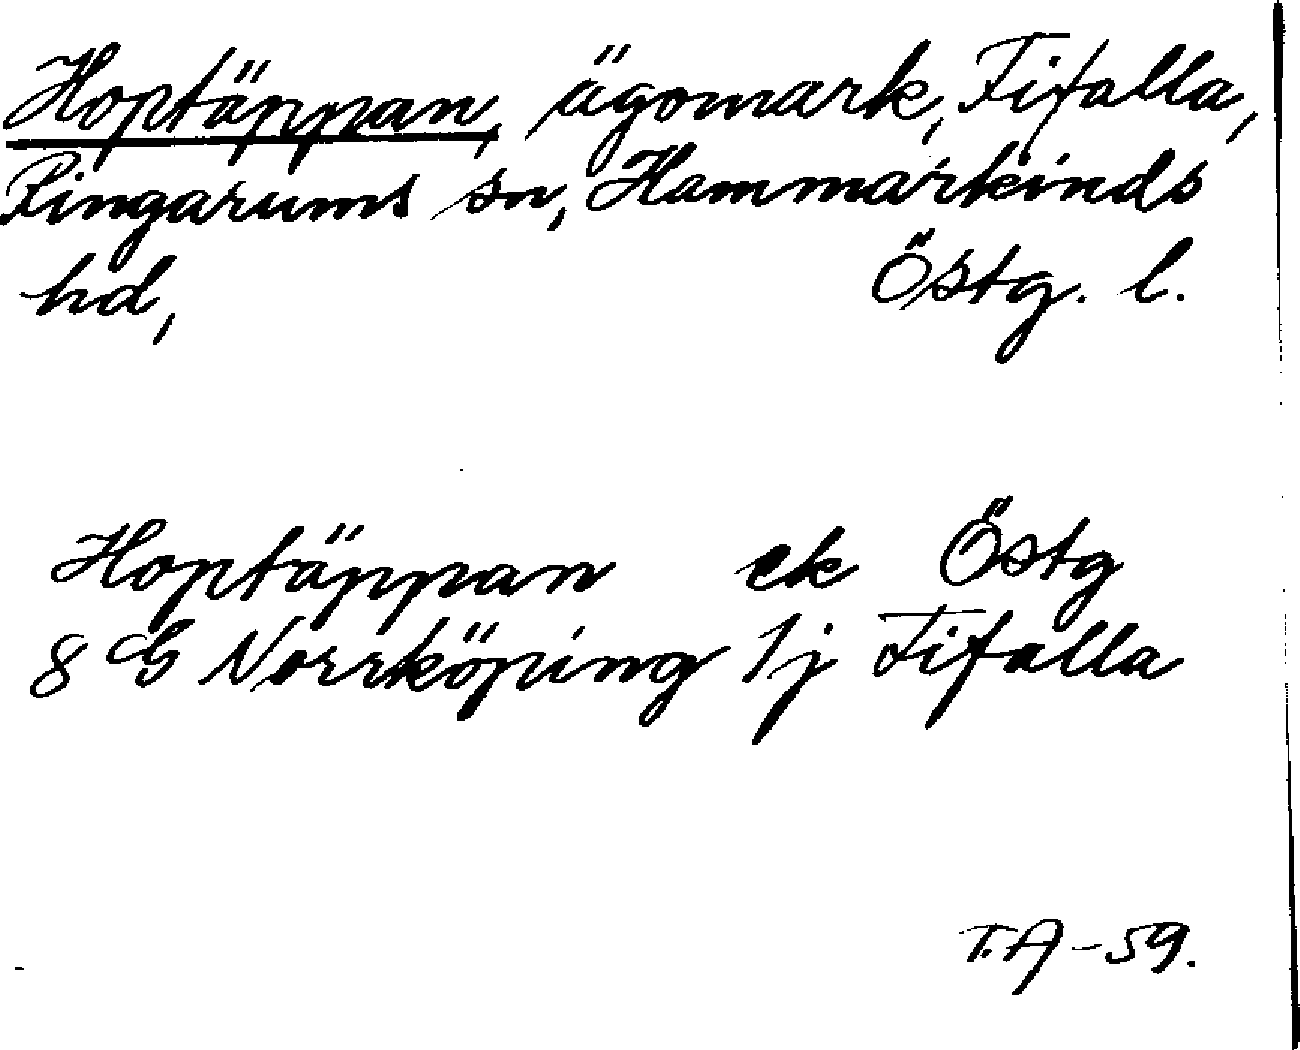 Hoptäppan, ägomark, Fifalla,
Ringarums sn, Hammarkinds
hd, Östg. l.
Hoptäppan ek Östg
8 G Norrköping 1j Fifalla
T.A-59.